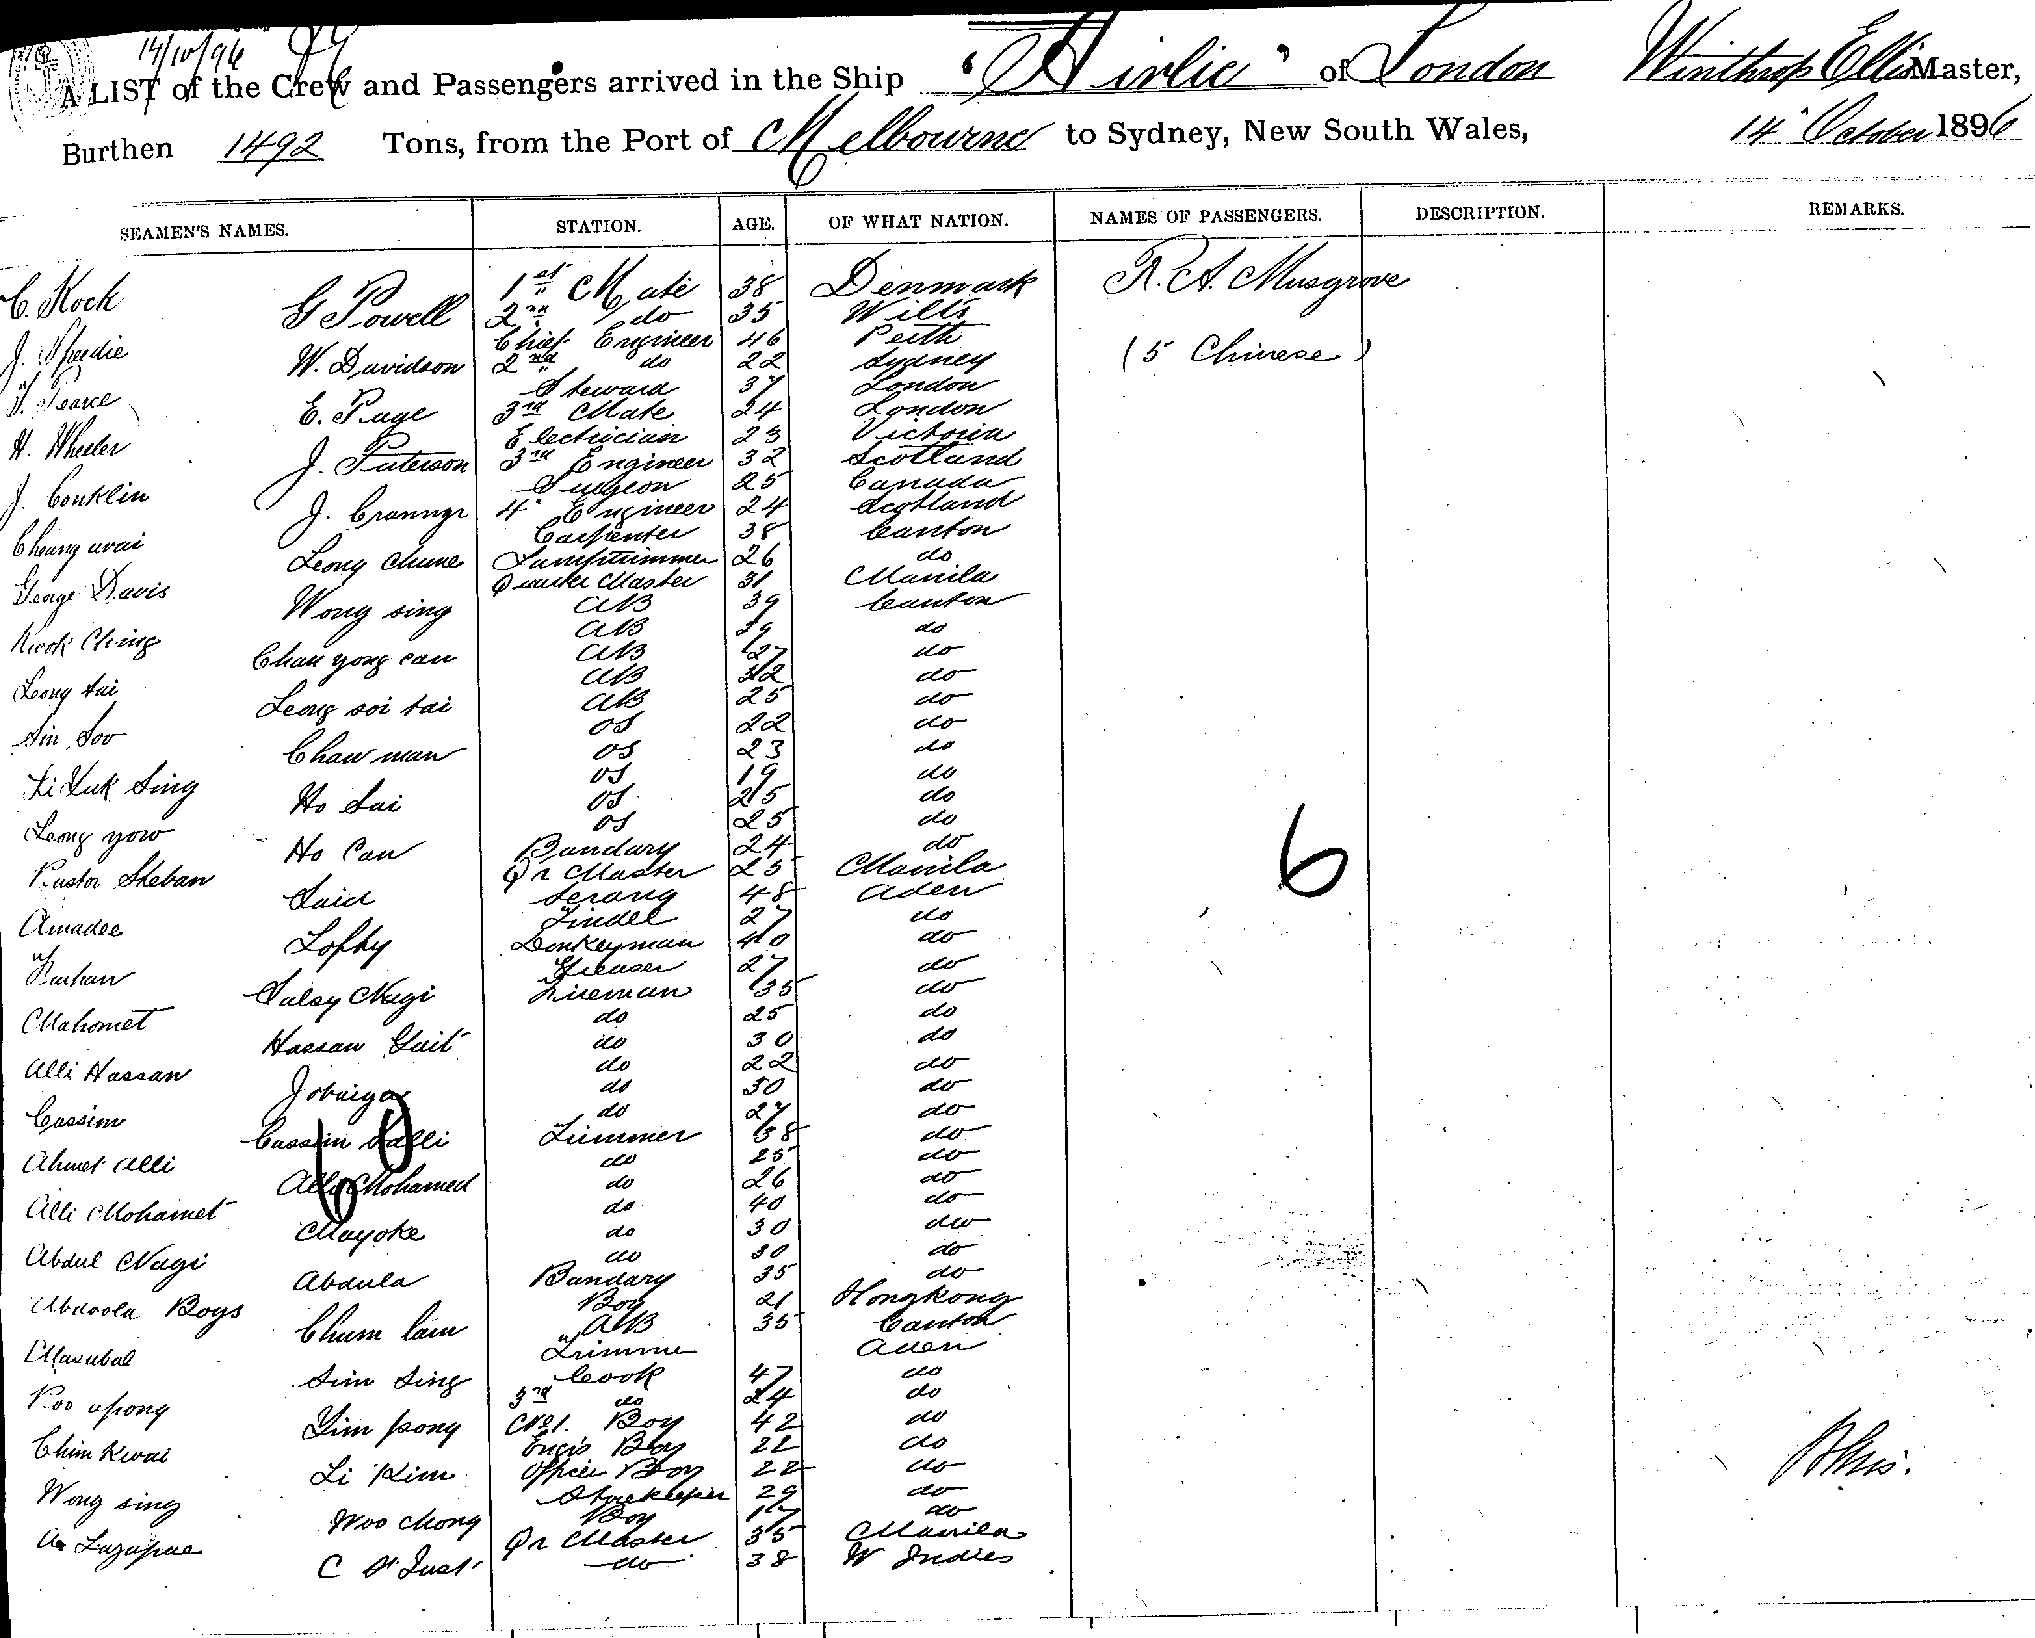 14/10/96
A LIST of the Crew and Passengers arrived in the Ship "Airlie" of London Winthrop Ellis Master,
Burthen 1492 Tons, from the Port of Melbourne to Sydney, New South Wales, 14 October 1896
SEAMEN'S NAMES. STATION. AGE. OF WHAT NATION. NAMES OF PASSENGERS. DESCRIPTION. REMARKS.
C. Kock 1st Mate 38 Denmark R. A. Musgrove
G Powell 2nd do 35 Wilts
J. Speedie Chief Engineer 46 Perth (5 Chinese)
W. Davidson 2nd do 22 Sydney
Pearce Steward 37 London
E. Page 3rd Mate 24 London
H. Wheeler Electrician 23 Victoria
J. Paterson 3rd Engineer 32 Scotland
J. Conklin Surgeon 25 Canada
J. 4 Engineer 24 Scotland
Cheung wai Carpenter 38 Canton
Leong chune Lamptrimmer 26 do
George Davis Quarter Master 31 Manila
Wong sing AB 39 Canton
Kwok Ching AB 39 do
Chan yong can AB 27 do
Leong tai AB 32 do
Leong soi tai AB 25 do
Sin Soo OS 22 do
Chan man OS 23 do
Li Yuk Sing OS 19 do
Ho Sai OS 25 do
Leong yow OS 25 do
Ho Can Bandary 24 do
Pastor Steban Qr Master 25 Manila
Said Serang 48 Aden
Amadee Tindel 27 do
Lofty Donkeyman 40 do
Farhan Greaser 27 do
Saley Nagi Fireman 35 do
Mahomet do 25 do
Hassan Gait do 30 do
Alli Hassan do 22 do
Jobaiya do 30 do
Cassim do 27 do
Cassim Salli Trimmer 38 do
Ahmet Alli do 25 do
Alli Mohamed do 26 do
Alli Mohamet do 40 do
Mayoke do 30 do
Abdul Nagi do 30 do
Abdula Bandary 35 do
Abdoola Boys Boy 21 Hongkong
Chum lam AB 35 Canton
Trimmer Aden
Sim Sing Cook 47 do
Poo apong 3rd do 24 do
Yim pong No 1. Boy 42 do
Chim Kwai Engrs Boy 22 do
Li Kim Officer Boy 22 do
Wong sing Storekeeper 29 do
Woo Chong Boy 17 do
Qr Master 35 Manila
C St Just do 38 W Indies
6
60